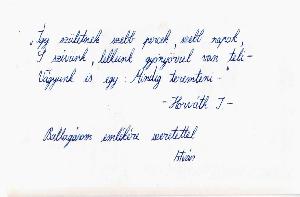 „Így születnek szebb percek, szebb napok,
S szívünk, lelkünk gyönyörrel van teli –
Vágyunk is egy: Mindig teremteni –"
– Horváth I –
Ballagásom emlékére szeretettel
István